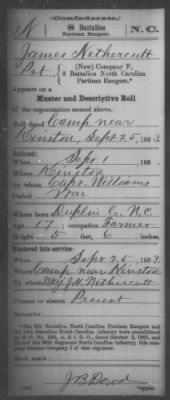 (Confederate.)
N 8 Battalion Partisan Rangers. N.C.
James Nethercutt
Pvt, (New) Company F,
8 Battalion North Carolina
Partisan Rangers.*
Appears on a
Muster and Descriptive Roll
of the organization named above.
Roll dated Camp near
Kinston, Sept 25, 1863.
Enlisted:
When Sept 1, 186
Where Kinston
By whom Capt. Williams
Period War
Where born Duplin Co. N.C.
Age 17; occupation Farmer
Height 5 feet, 6 inches.
Mustered into service:
When Sept 25, 1863.
Where Camp near Kinston
By whom Maj J.H. Nethercutt
Present or absent Present
Remarks:
*The 8th Battalion North Carolina Partisan Rangers and
the 13th Battalion North Carolina Infantry were consolidated
by S. O. No. 236, A. & I. G. O., dated October 3, 1863, and
formed the 66th Regiment North Carolina Infantry; this com-
pany became Company I of this regiment.
Book mark:
Copyist.